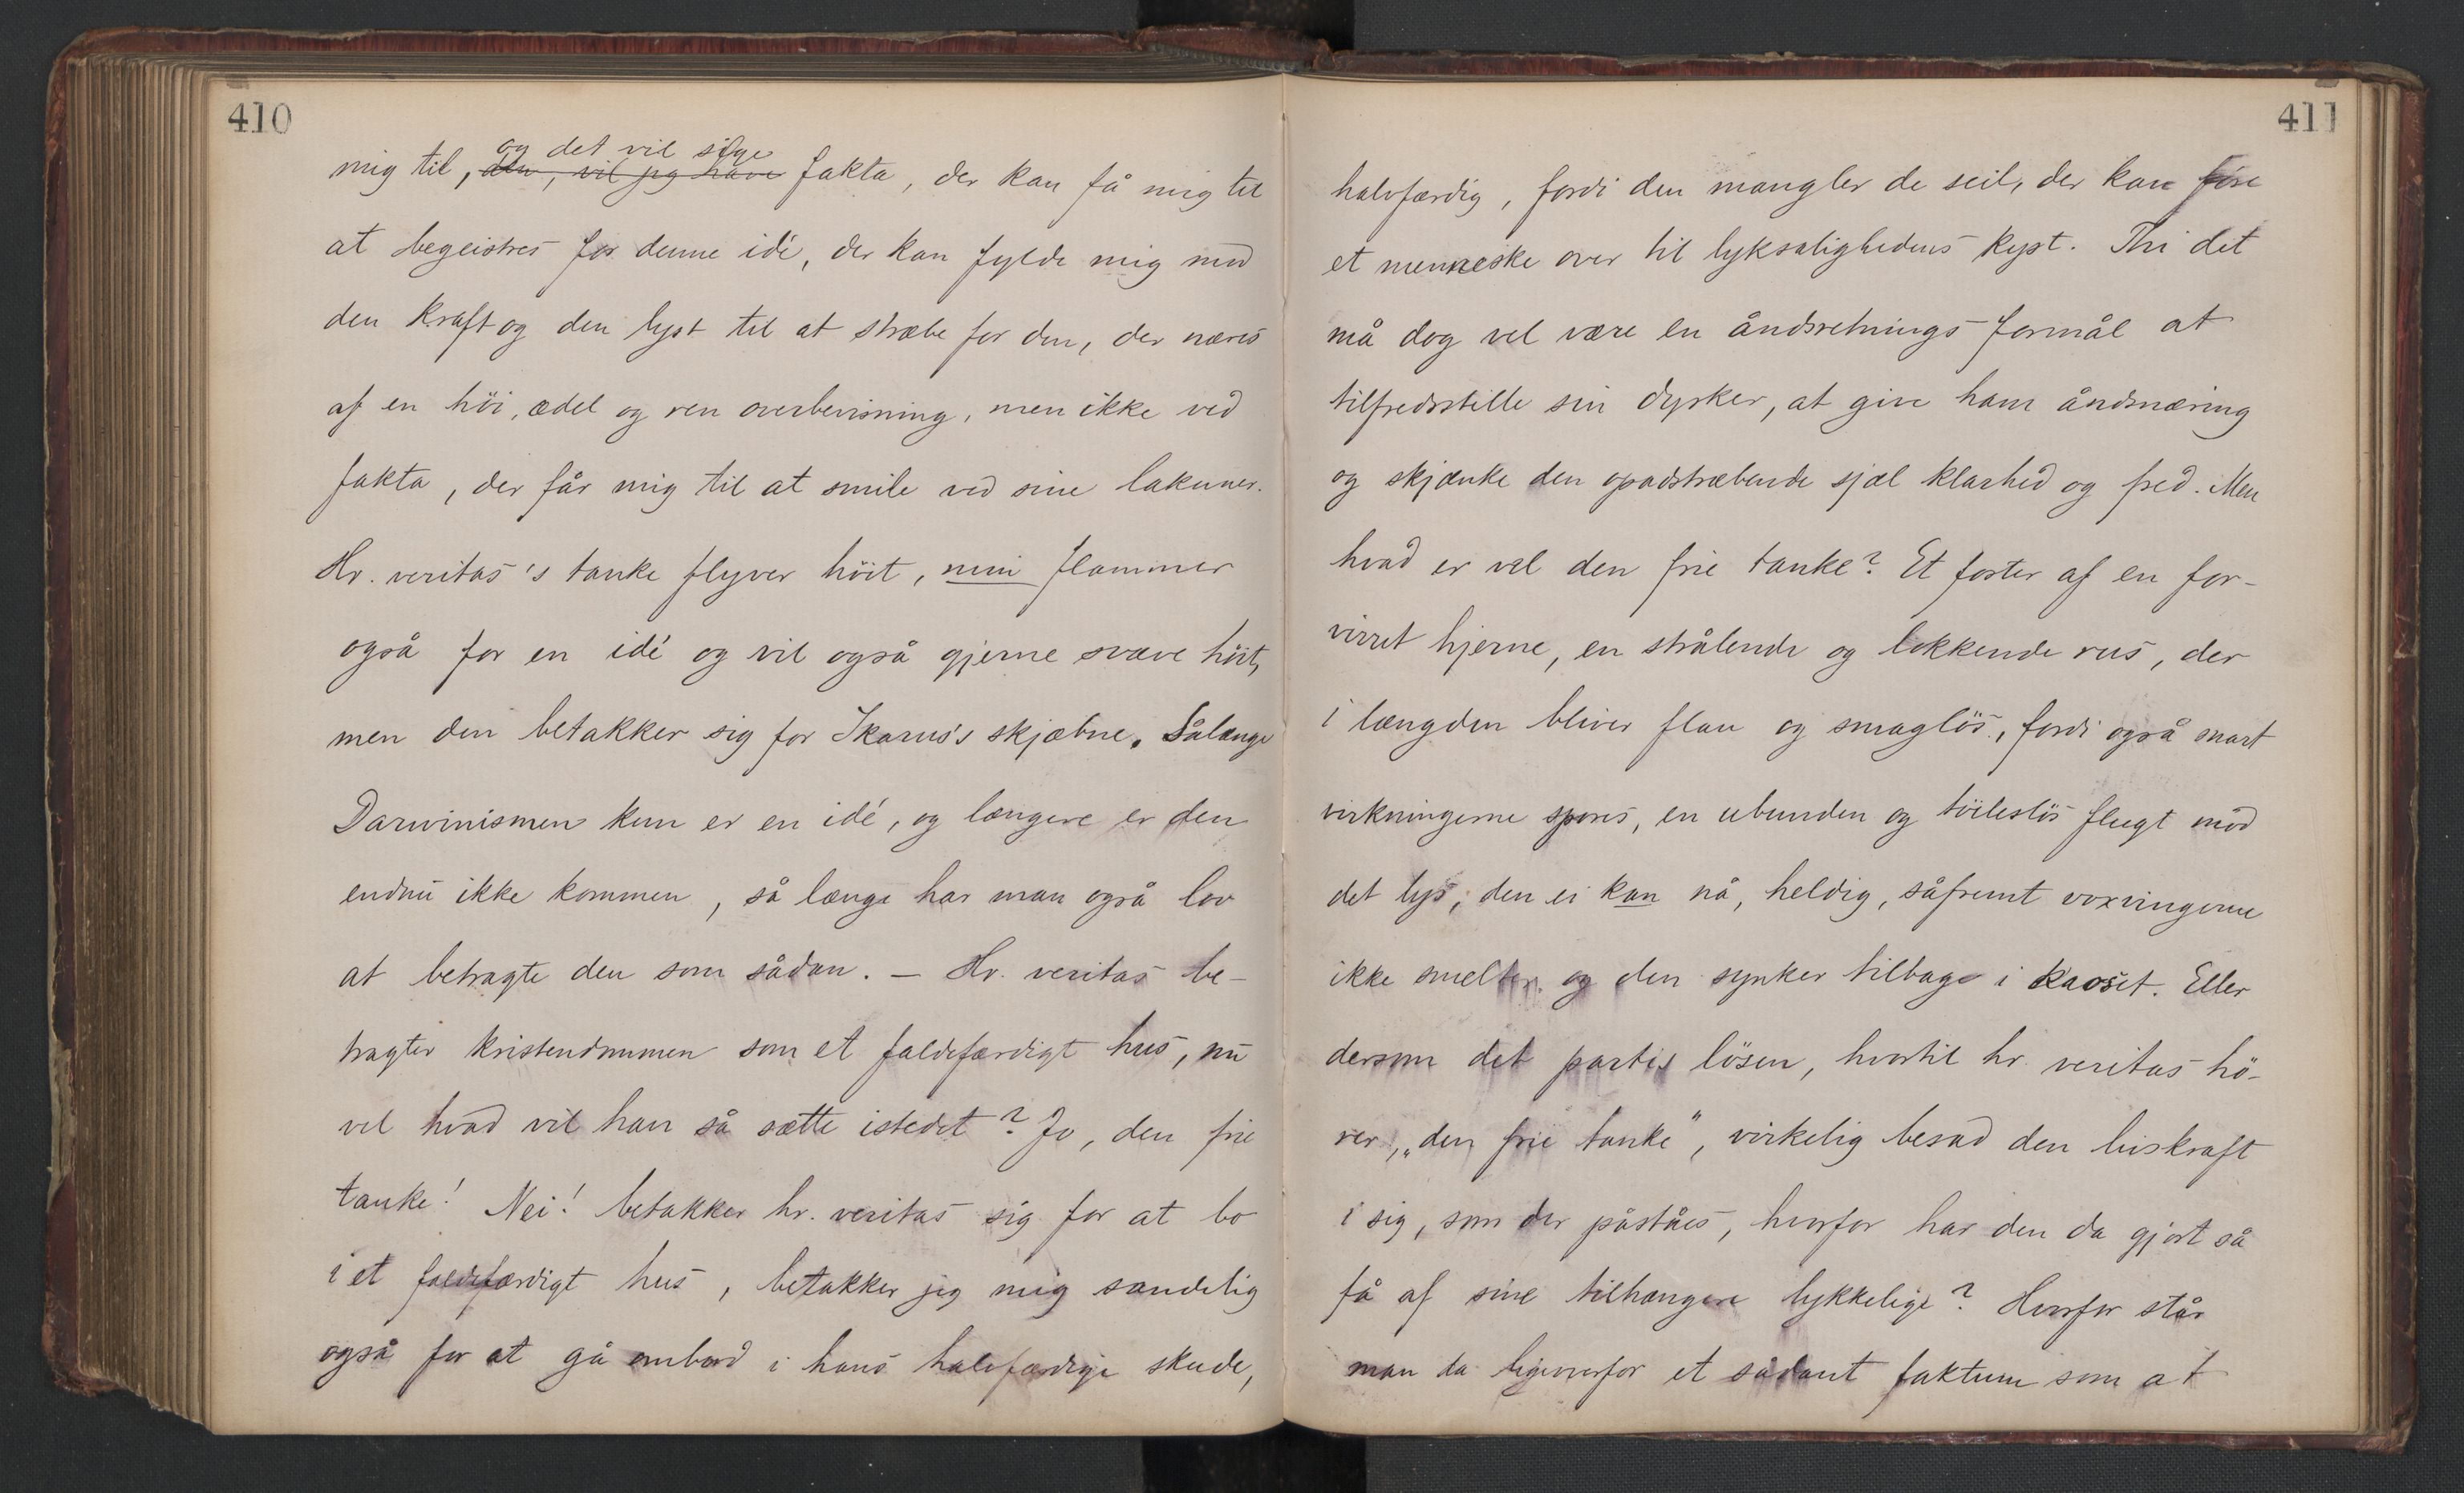 410
og det vil sige
mig til, den, vil jeg have fakta, der kan få mig til
at begeistres for denne idé, der kan fylde mig med
den kraft og den lyst til at stræbe for den, der næres
af en höi, ædel og ren overbevisning, men ikke ved
fakta, der får mig til at smile ved sine lakuner.
Hr. veritas's tanke flyver höit, min flammer
også for en idé og vil også gjerne svæve höit,
men den betakker sig for Ikarus's skjæbne. Sålænge
Darwinismen kun er en idé, og længere er den
endnu ikke kommen, så længe har man også lov
at betragte den som sådan. – Hr. veritas be-
tragter kristendommen som et faldefærdigt hus, nu
vel hvad vil han så sætte istedet? Jo, den frie
tanke! Nei! betakker hr. veritas sig for at bo
i et faldefærdigt hus, betakker jeg mig sandelig
også for at gå ombord i hans halvfærdige skude,
411
halvfærdig, fordi den mangler de seil, der kan före
et menneske over til lyksalighedens kyst. Thi det
må dog vel være en åndsretnings formål at
tilfredsstille sin dyrker, at give ham åndsnæring
og skjænke den opadstræbende sjæl klarhed og fred. Men
hvad er vel den frie tanke? Et foster af en for-
virret hjerne, en strålende og lokkende rus, der
i længden bliver flau og smaglös, fordi også snart
virkningerne spores, en ubunden og töileslös flugt mod
det lys, den ei kan nå, heldig, såfremt voxvingerne
ikke smelter og den synker tilbage i kaoset. Eller
dersom det partis lösen, hvortil hr. veritas hö-
rer, „den frie tanke", virkelig besad den livskraft
i sig, som der påståes, hvorfor har den da gjort så
få af sine tilhængere lykkelige? Hvorfor står
man da ligeoverfor et sådant faktum som at